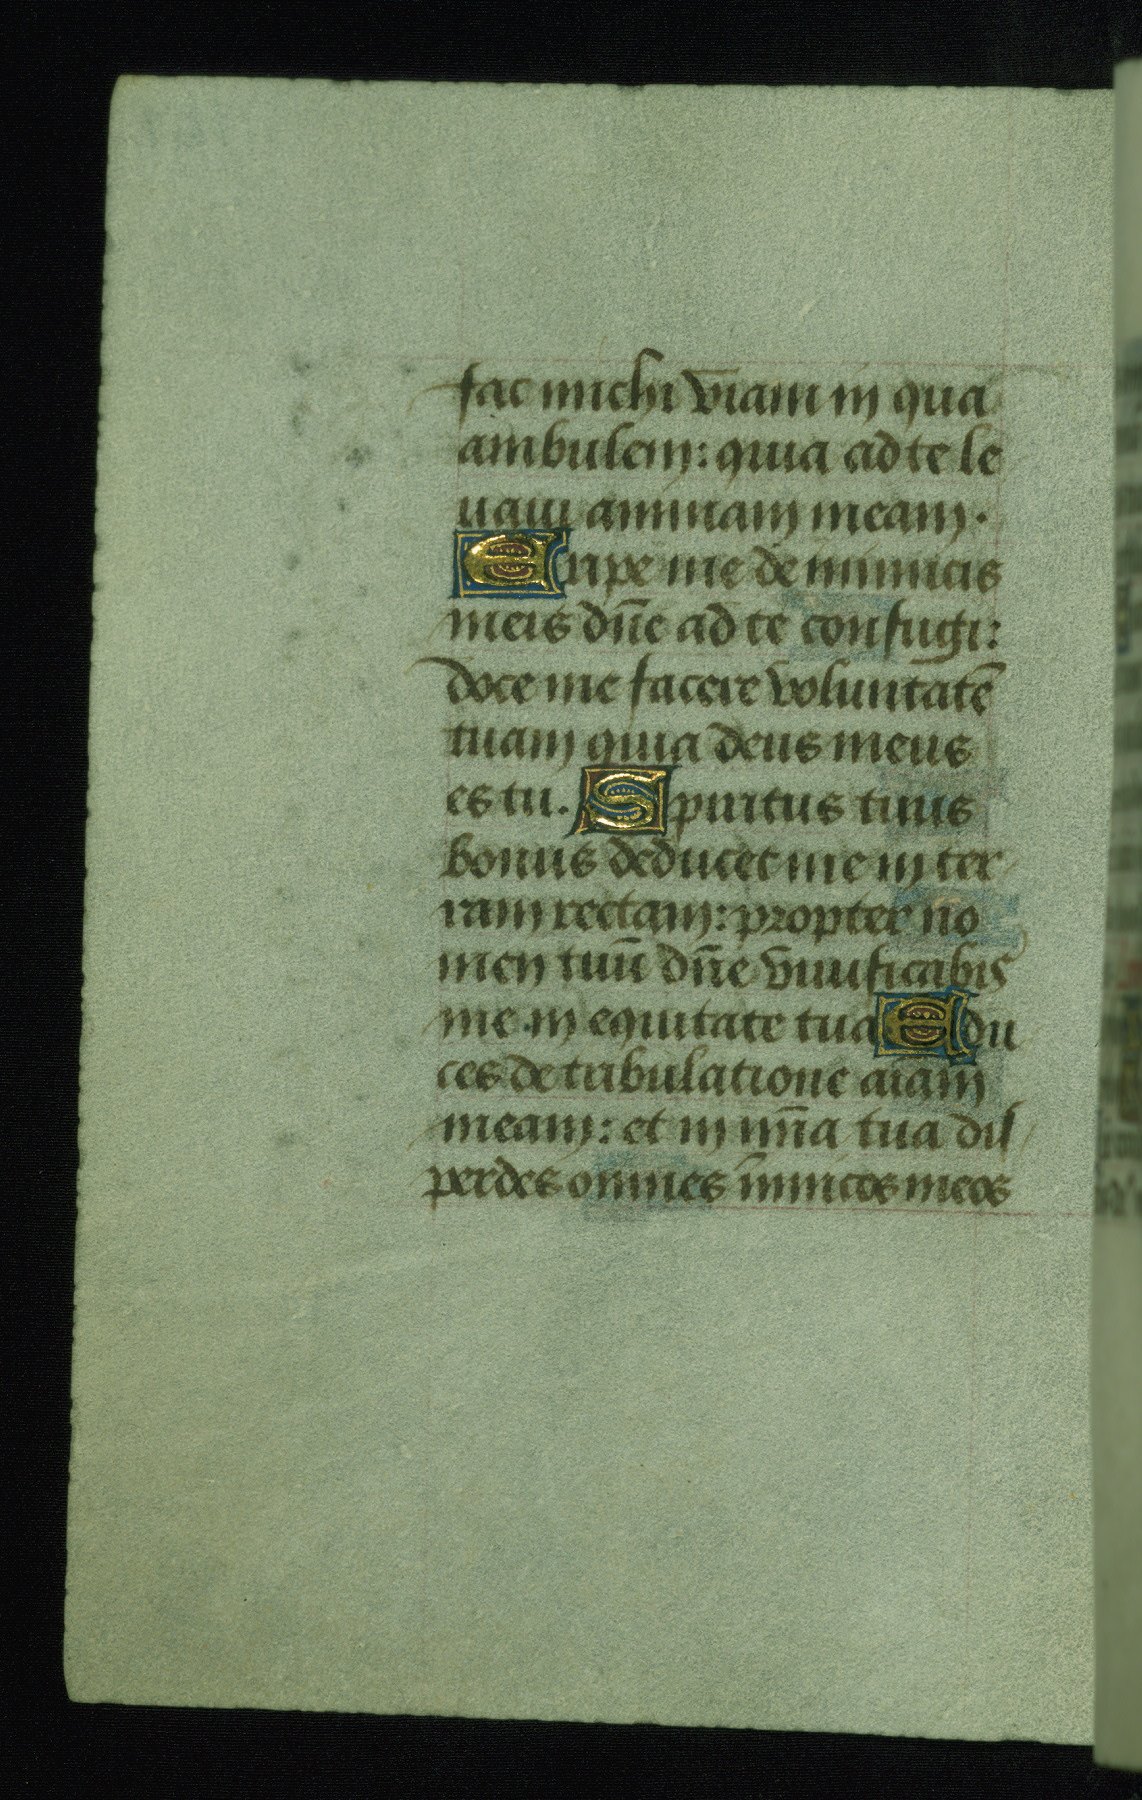 fac michi viam in qua
ambulem: quia ad te le
uaui animam meam.
Eripe me de inimicis
meis dñe ad te confugi:
doce me facere voluntatē
tuam quia deus meus
es tu. Spiritus tuus
bonus deducet me in ter
ram rectam: propter no
men tuū dñe viuificabis
me in equitate tua Edu
ces de tribulatione aīam
meam: et in mīa tua dis
perdes omnes inimicos meos